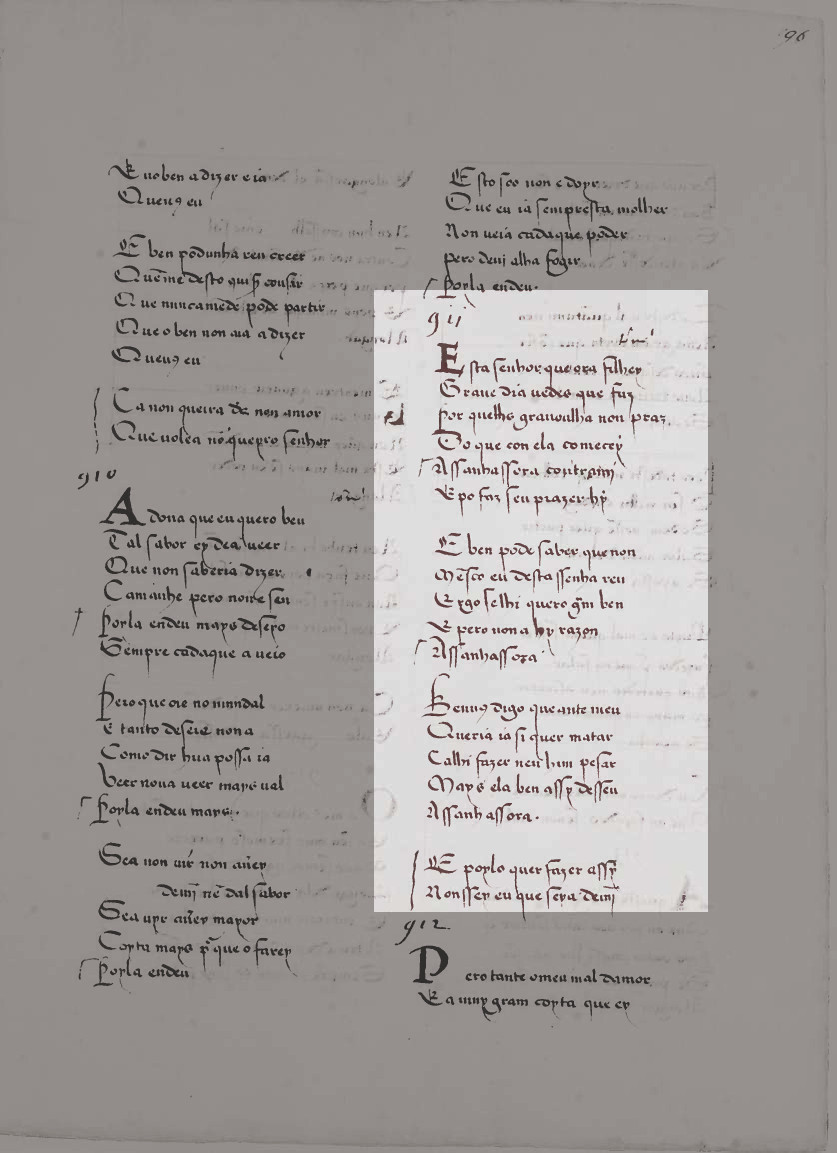 96
E uoben adizer eia
Queu9 eu
E ben podunha reu creer
Que me desto quis cousir
Que nuncamede pode partir
Que o ben non aia adizer
Queu9 eu
Ca non queira deus nen amor
Que uolea no queyro senhor
910
A dona que eu quero beu
Tal sabor ey dea ueer
Que non saberia dizer
Camanhe pero noire seu
Porla endeu mays deseio
Sempre cadaque a ueio
Pero que oie no mundal
E tanto deseie nona
Como dir hua possa ia
Veer noua ueer mays ual
Porla endeu mays
Sea non uir non auer
demi nen dal sabor
Sea uyr auer mayor
Coyta mays per que o farey
Porla endeu
Esto sco non e doyr
Que eu ia sempresta molher
Non ueia cadaque poder
pero demi alha fogir
Porla endeu
911
Esta senhor que ora filhey
Graue dia uedes que faz
Por quelhs grauoulha non praz
Do que con ela comecey
Assanhassora contrami
E po faz seu prazer hy
E ben pode saber que non
Mesco eu desta ssenha reu
Ergo selhi quero gm ben
E pero non a hy razon
Assanhassora
Benu9 digo que ante meu
Queria ia si quer matar
Calhi fazer neu hum pesar
Mays ela ben assy desseu
Assanhassora
E porlo quer fazer assy
Nonssey eu que seia demi
912
Pero tante o meu mal damor
E a muy gram coyta que ey